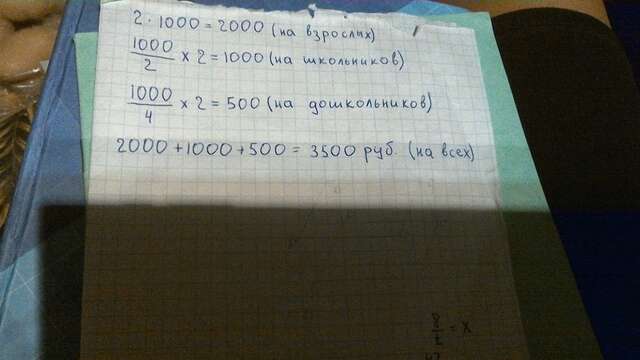 2 · 1000 = 2000 (на взрослых)
1000/2 x 2 = 1000 (на школьников)
1000/4 x 2 = 500 (на дошкольников)
2000 + 1000 + 500 = 3500 руб. (на всех)
= x